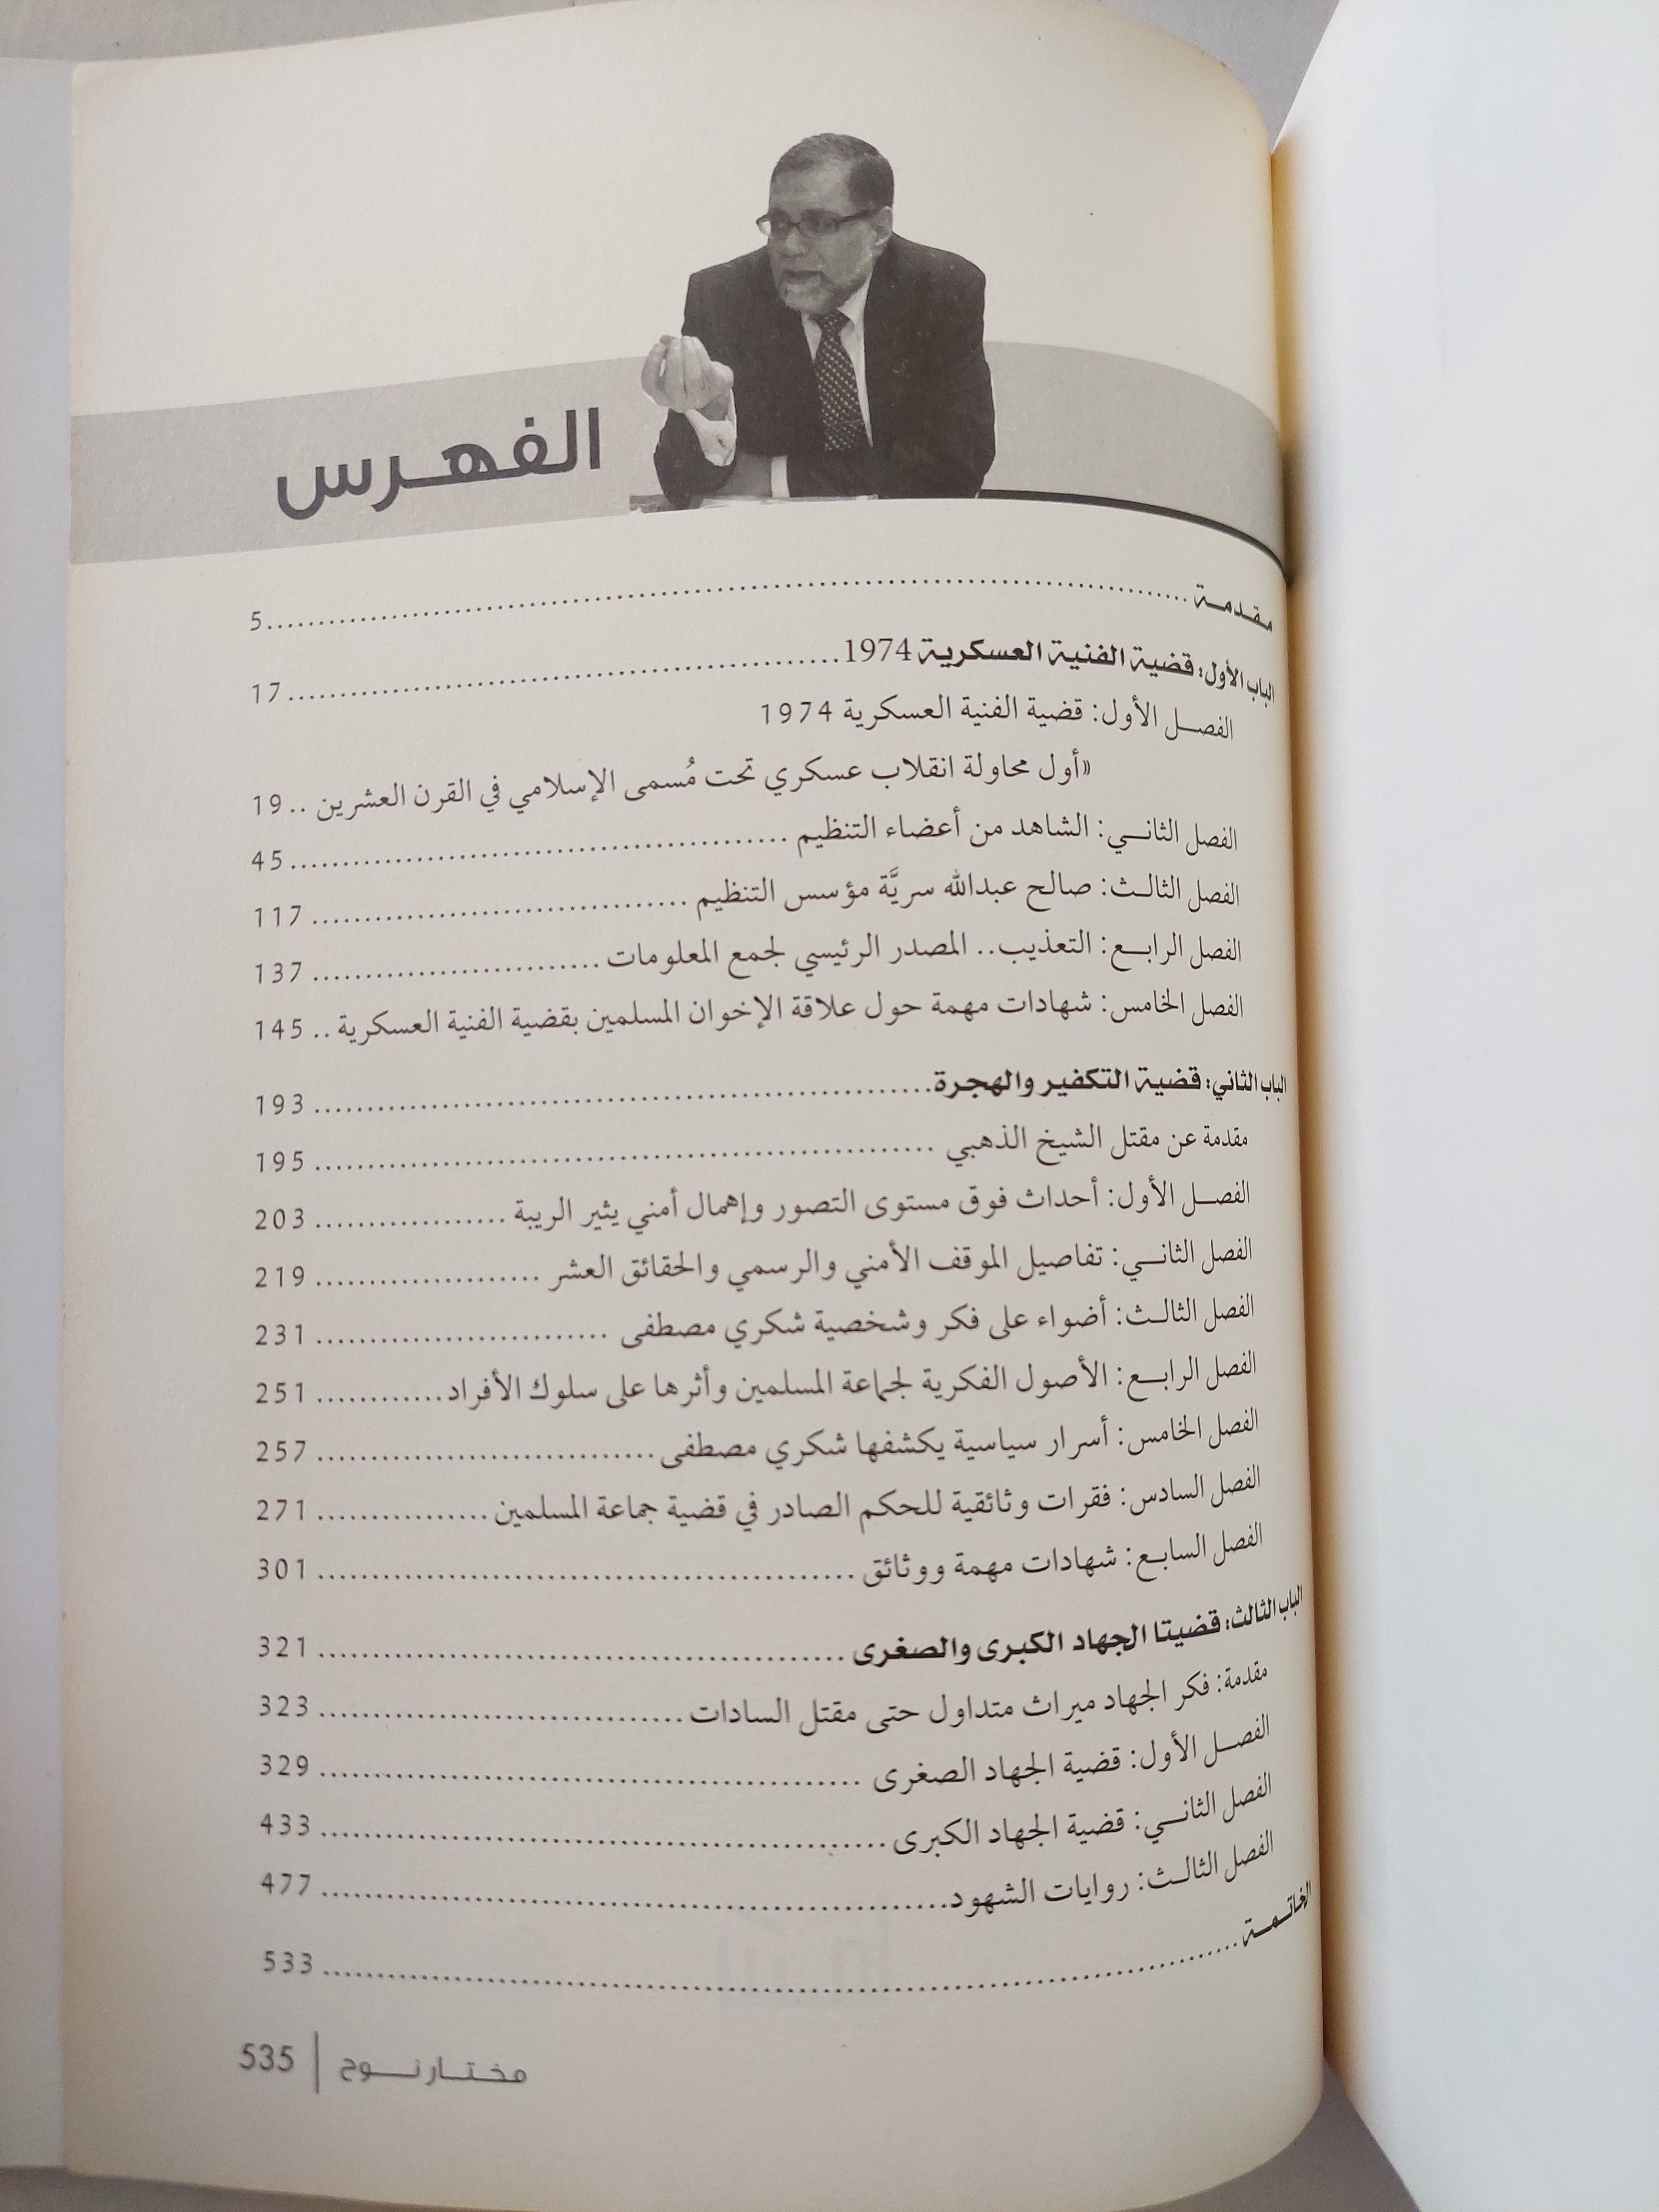 الفهرس
مقدمة ........ 5
الباب الأول: قضية الفنية العسكرية 1974 ........ 17
الفصل الأول: قضية الفنية العسكرية 1974
«أول محاولة انقلاب عسكري تحت مُسمى الإسلامي في القرن العشرين .. 19
الفصل الثاني: الشاهد من أعضاء التنظيم ........ 45
الفصل الثالث: صالح عبدالله سريَّة مؤسس التنظيم ........ 117
الفصل الرابع: التعذيب.. المصدر الرئيسي لجمع المعلومات ........ 137
الفصل الخامس: شهادات مهمة حول علاقة الإخوان المسلمين بقضية الفنية العسكرية .. 145
الباب الثاني: قضية التكفير والهجرة ........ 193
مقدمة عن مقتل الشيخ الذهبي ........ 195
الفصل الأول: أحداث فوق مستوى التصور وإهمال أمني يثير الريبة ........ 203
الفصل الثاني: تفاصيل الموقف الأمني والرسمي والحقائق العشر ........ 219
الفصل الثالث: أضواء على فكر وشخصية شكري مصطفى ........ 231
الفصل الرابع: الأصول الفكرية لجماعة المسلمين وأثرها على سلوك الأفراد ........ 251
الفصل الخامس: أسرار سياسية يكشفها شكري مصطفى ........ 257
الفصل السادس: فقرات وثائقية للحكم الصادر في قضية جماعة المسلمين ........ 271
الفصل السابع: شهادات مهمة ووثائق ........ 301
الباب الثالث: قضيتا الجهاد الكبرى والصغرى ........ 321
مقدمة: فكر الجهاد ميراث متداول حتى مقتل السادات ........ 323
الفصل الأول: قضية الجهاد الصغرى ........ 329
الفصل الثاني: قضية الجهاد الكبرى ........ 433
الفصل الثالث: روايات الشهود ........ 477
الخاتمة ........ 533
مختار نوح | 535